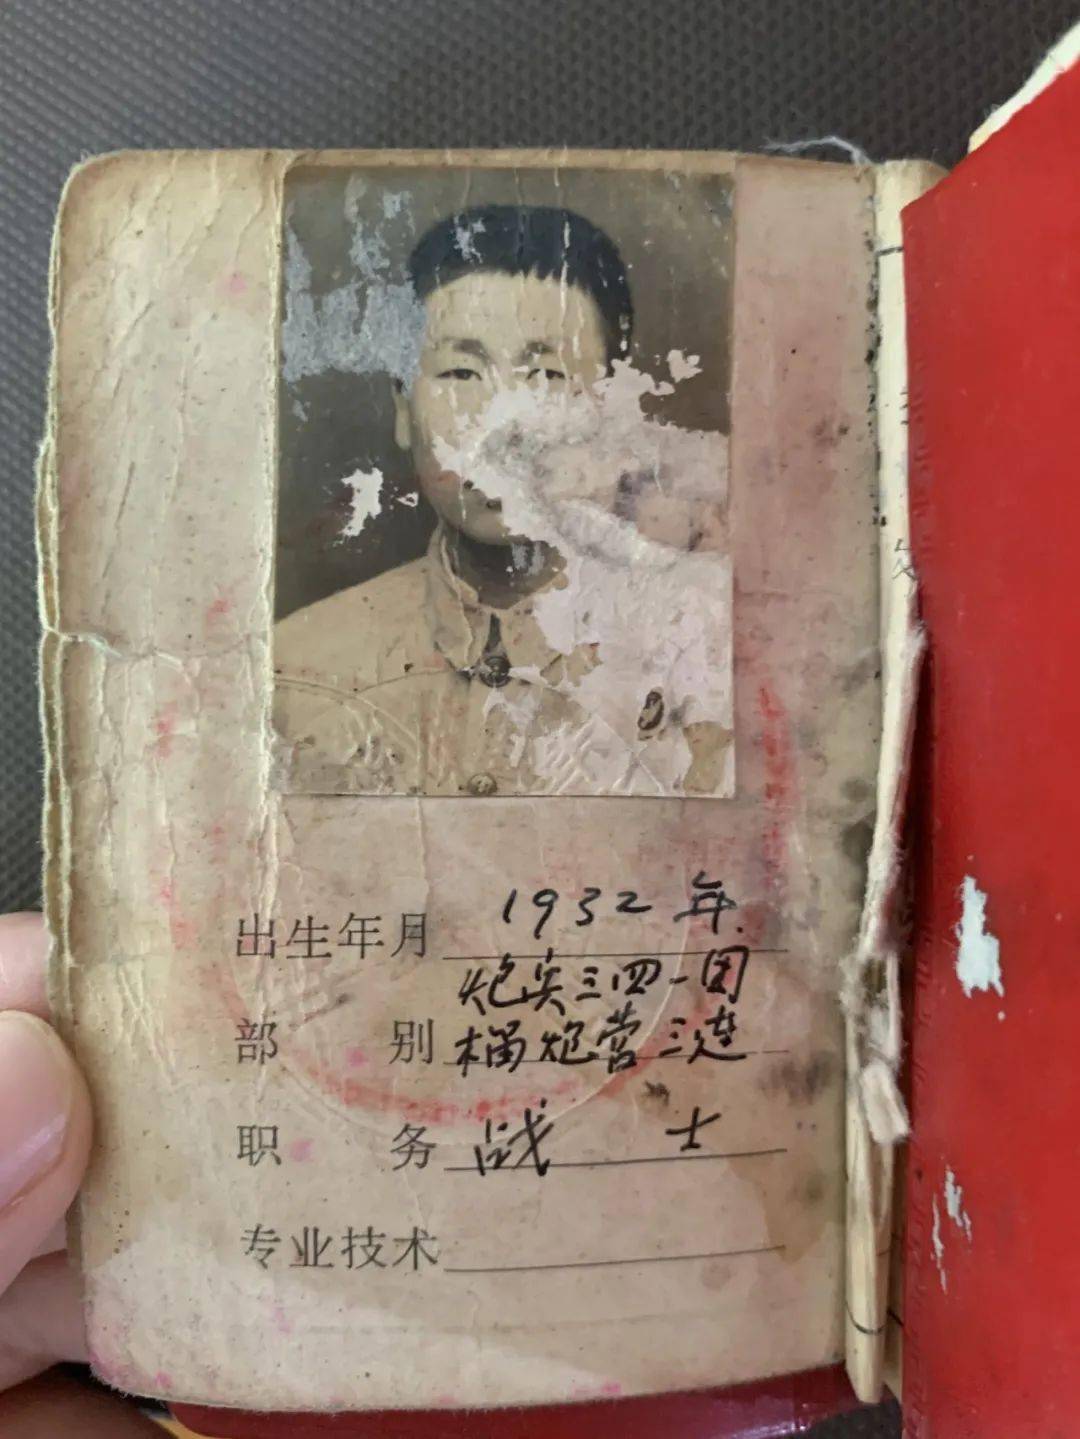 出生年月 1932年
部别 炮兵三四一团
榴炮营三连
职务 战士
专业技术